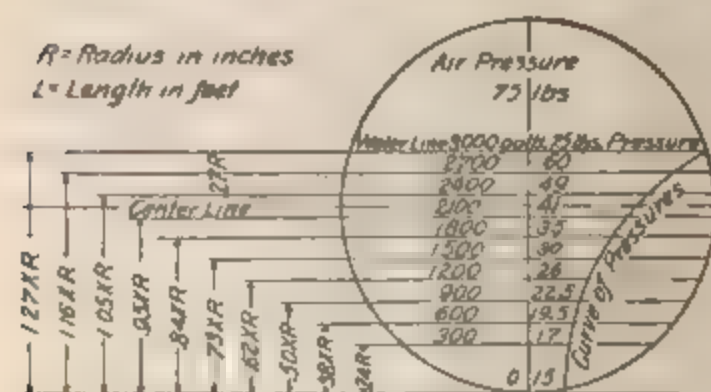 R = Radius in inches
L = Length in feet
Air Pressure
75 lbs
Water Line 3000 gal. 75 lbs. Pressure
2700 60
2400 49
2100 41
1800 35
1500 30
1200 26
900 22.5
600 19.5
300 17
0 15
Curve of Pressures
.27R
Center Line
1.27XR
1.16XR
1.05XR
.95XR
.84XR
.73XR
.62XR
.50XR
.38XR
.24R